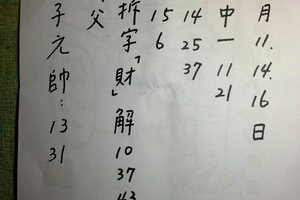 月 11. 14. 16 日
中一 11 21
14 25 37
15 6
拆字「財」解 10 37
父
子元帥: 13 31